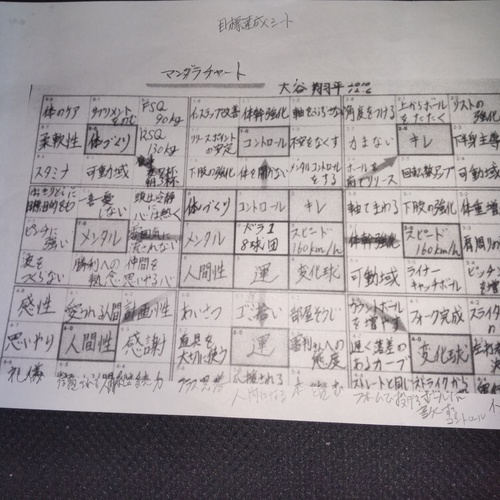 目標達成シート
マンダラチャート 大谷 翔平
体のケア サプリメントをのむ FSQ 90kg インステップ改善 体幹強化 軸をぶらさない 角度をつける 上からボールをたたく リストの強化
柔軟性 体づくり RSQ 130kg リリースポイントの安定 コントロール 不安をなくす 力まない キレ 下半身主導
スタミナ 可動域 下肢の強化 体を開かない メンタルコントロールをする ボールを前でリリース 回転数アップ 可動域
はっきりとした目標、目的をもつ 一喜一憂しない 頭は冷静に心は熱く 体づくり コントロール キレ 軸でまわる 下肢の強化 体重増
ピンチに強い メンタル 雰囲気に流されない メンタル ドラ1 8球団 スピード 160km/h 体幹強化 スピード 160km/h 肩周りの
波をつくらない 勝利への執念 仲間を思いやる心 人間性 運 変化球 可動域 ライナーキャッチボール ピッチングを増
感性 愛される人間 計画性 あいさつ ゴミ拾い 部屋そうじ カウントボールを増やす フォーク完成 スライダ
思いやり 人間性 感謝 道具を大切に使う 運 審判さんへの態度 遅く落差のあるカーブ 変化球
礼儀 継続力 プラス思考 応援される人間になる 本を読む ストレートと同じフォームで投げる ストライクから コントロール